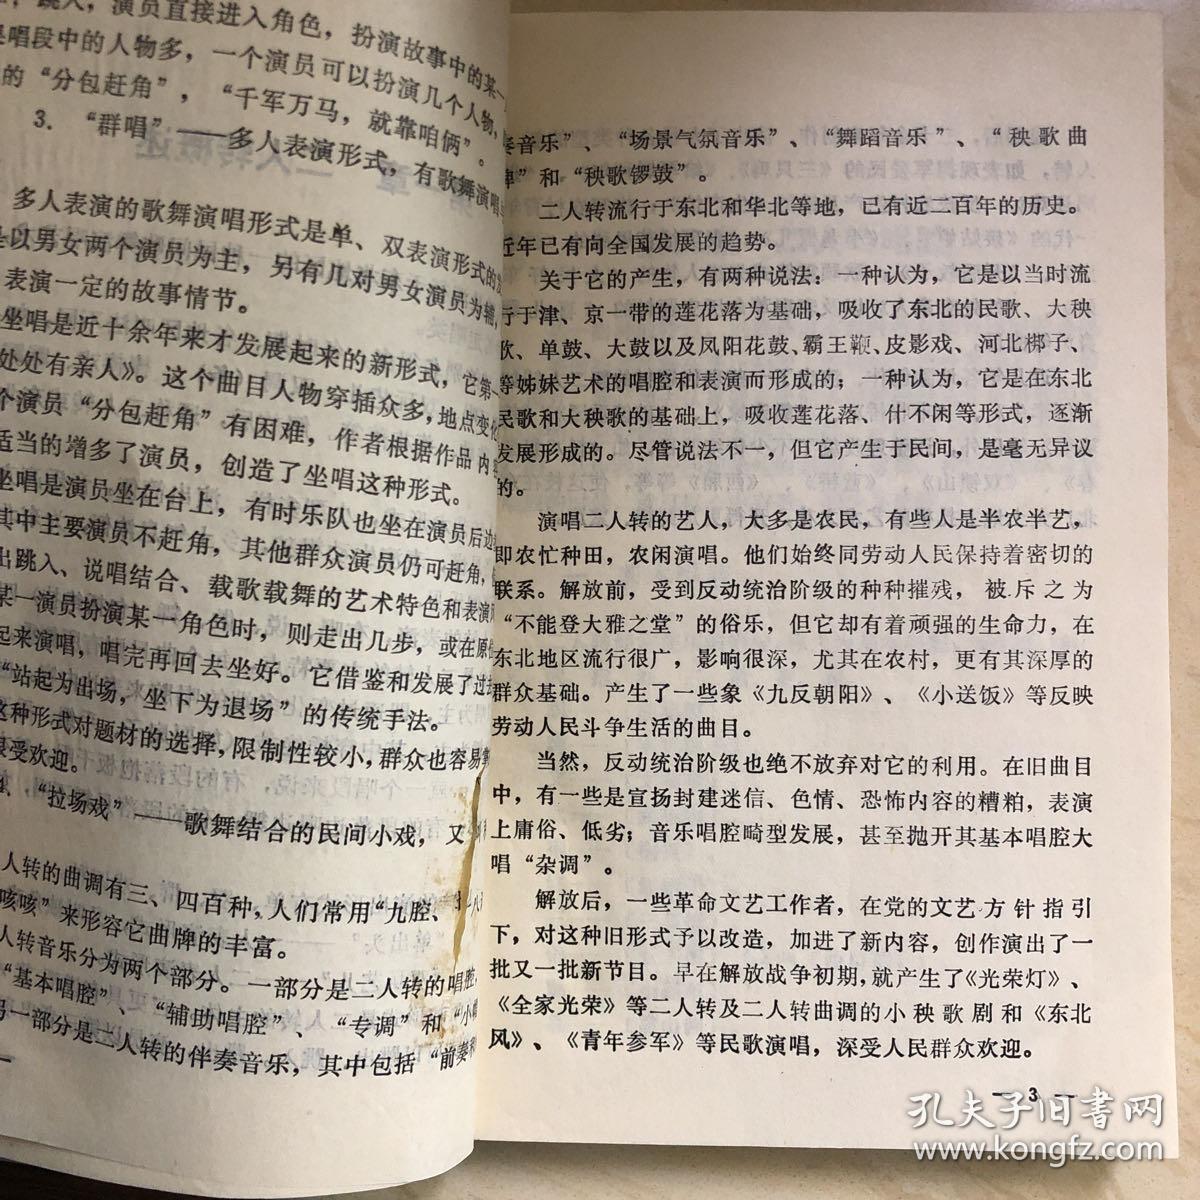 跳入，演员直接进入角色，扮演故事中的某一
唱段中的人物多，一个演员可以扮演几个人物，
的“分包赶角”，“千军万马，就靠咱俩”。
3．“群唱”——多人表演形式，有歌舞演唱
多人表演的歌舞演唱形式是单、双表演形式的
以男女两个演员为主，另有几对男女演员为辅，
表演一定的故事情节。
坐唱是近十余年来才发展起来的新形式，它第一
处处有亲人》。这个曲目人物穿插众多，地点变化
个演员“分包赶角”有困难，作者根据作品内
适当的增多了演员，创造了坐唱这种形式。
坐唱是演员坐在台上，有时乐队也坐在演员后边
其中主要演员不赶角，其他群众演员仍可赶角，
出跳入、说唱结合、载歌载舞的艺术特色和表演
某一演员扮演某一角色时，则走出几步，或在原
起来演唱，唱完再回去坐好。它借鉴和发展了过去
“站起为出场，坐下为退场”的传统手法。
这种形式对题材的选择，限制性较小，群众也容易
受欢迎。
“拉场戏”——歌舞结合的民间小戏，又
人转的曲调有三、四百种，人们常用“九腔、
咳咳”来形容它曲牌的丰富。
人转音乐分为两个部分。一部分是二人转的唱腔，
“基本唱腔”、“辅助唱腔”、“专调”和“小
一部分是二人转的伴奏音乐，其中包括“前奏
奏音乐”、“场景气氛音乐”、“舞蹈音乐”、“秧歌曲
牌”和“秧歌锣鼓”。
二人转流行于东北和华北等地，已有近二百年的历史。
近年已有向全国发展的趋势。
关于它的产生，有两种说法：一种认为，它是以当时流
行于津、京一带的莲花落为基础，吸收了东北的民歌、大秧
歌、单鼓、大鼓以及凤阳花鼓、霸王鞭、皮影戏、河北梆子、
等姊妹艺术的唱腔和表演而形成的；一种认为，它是在东北
民歌和大秧歌的基础上，吸收莲花落、什不闲等形式，逐渐
发展形成的。尽管说法不一，但它产生于民间，是毫无异议
的。
演唱二人转的艺人，大多是农民，有些人是半农半艺，
即农忙种田，农闲演唱。他们始终同劳动人民保持着密切的
联系。解放前，受到反动统治阶级的种种摧残，被斥之为
“不能登大雅之堂”的俗乐，但它却有着顽强的生命力，在
东北地区流行很广，影响很深，尤其在农村，更有其深厚的
群众基础。产生了一些象《九反朝阳》、《小送饭》等反映
劳动人民斗争生活的曲目。
当然，反动统治阶级也绝不放弃对它的利用。在旧曲目
中，有一些是宣扬封建迷信、色情、恐怖内容的糟粕，表演
上庸俗、低劣；音乐唱腔畸型发展，甚至抛开其基本唱腔大
唱“杂调”。
解放后，一些革命文艺工作者，在党的文艺方针指引
下，对这种旧形式予以改造，加进了新内容，创作演出了一
批又一批新节目。早在解放战争初期，就产生了《光荣灯》、
《全家光荣》等二人转及二人转曲调的小秧歌剧和《东北
风》、《青年参军》等民歌演唱，深受人民群众欢迎。
— 3 —
孔夫子旧书网
www.kongfz.com